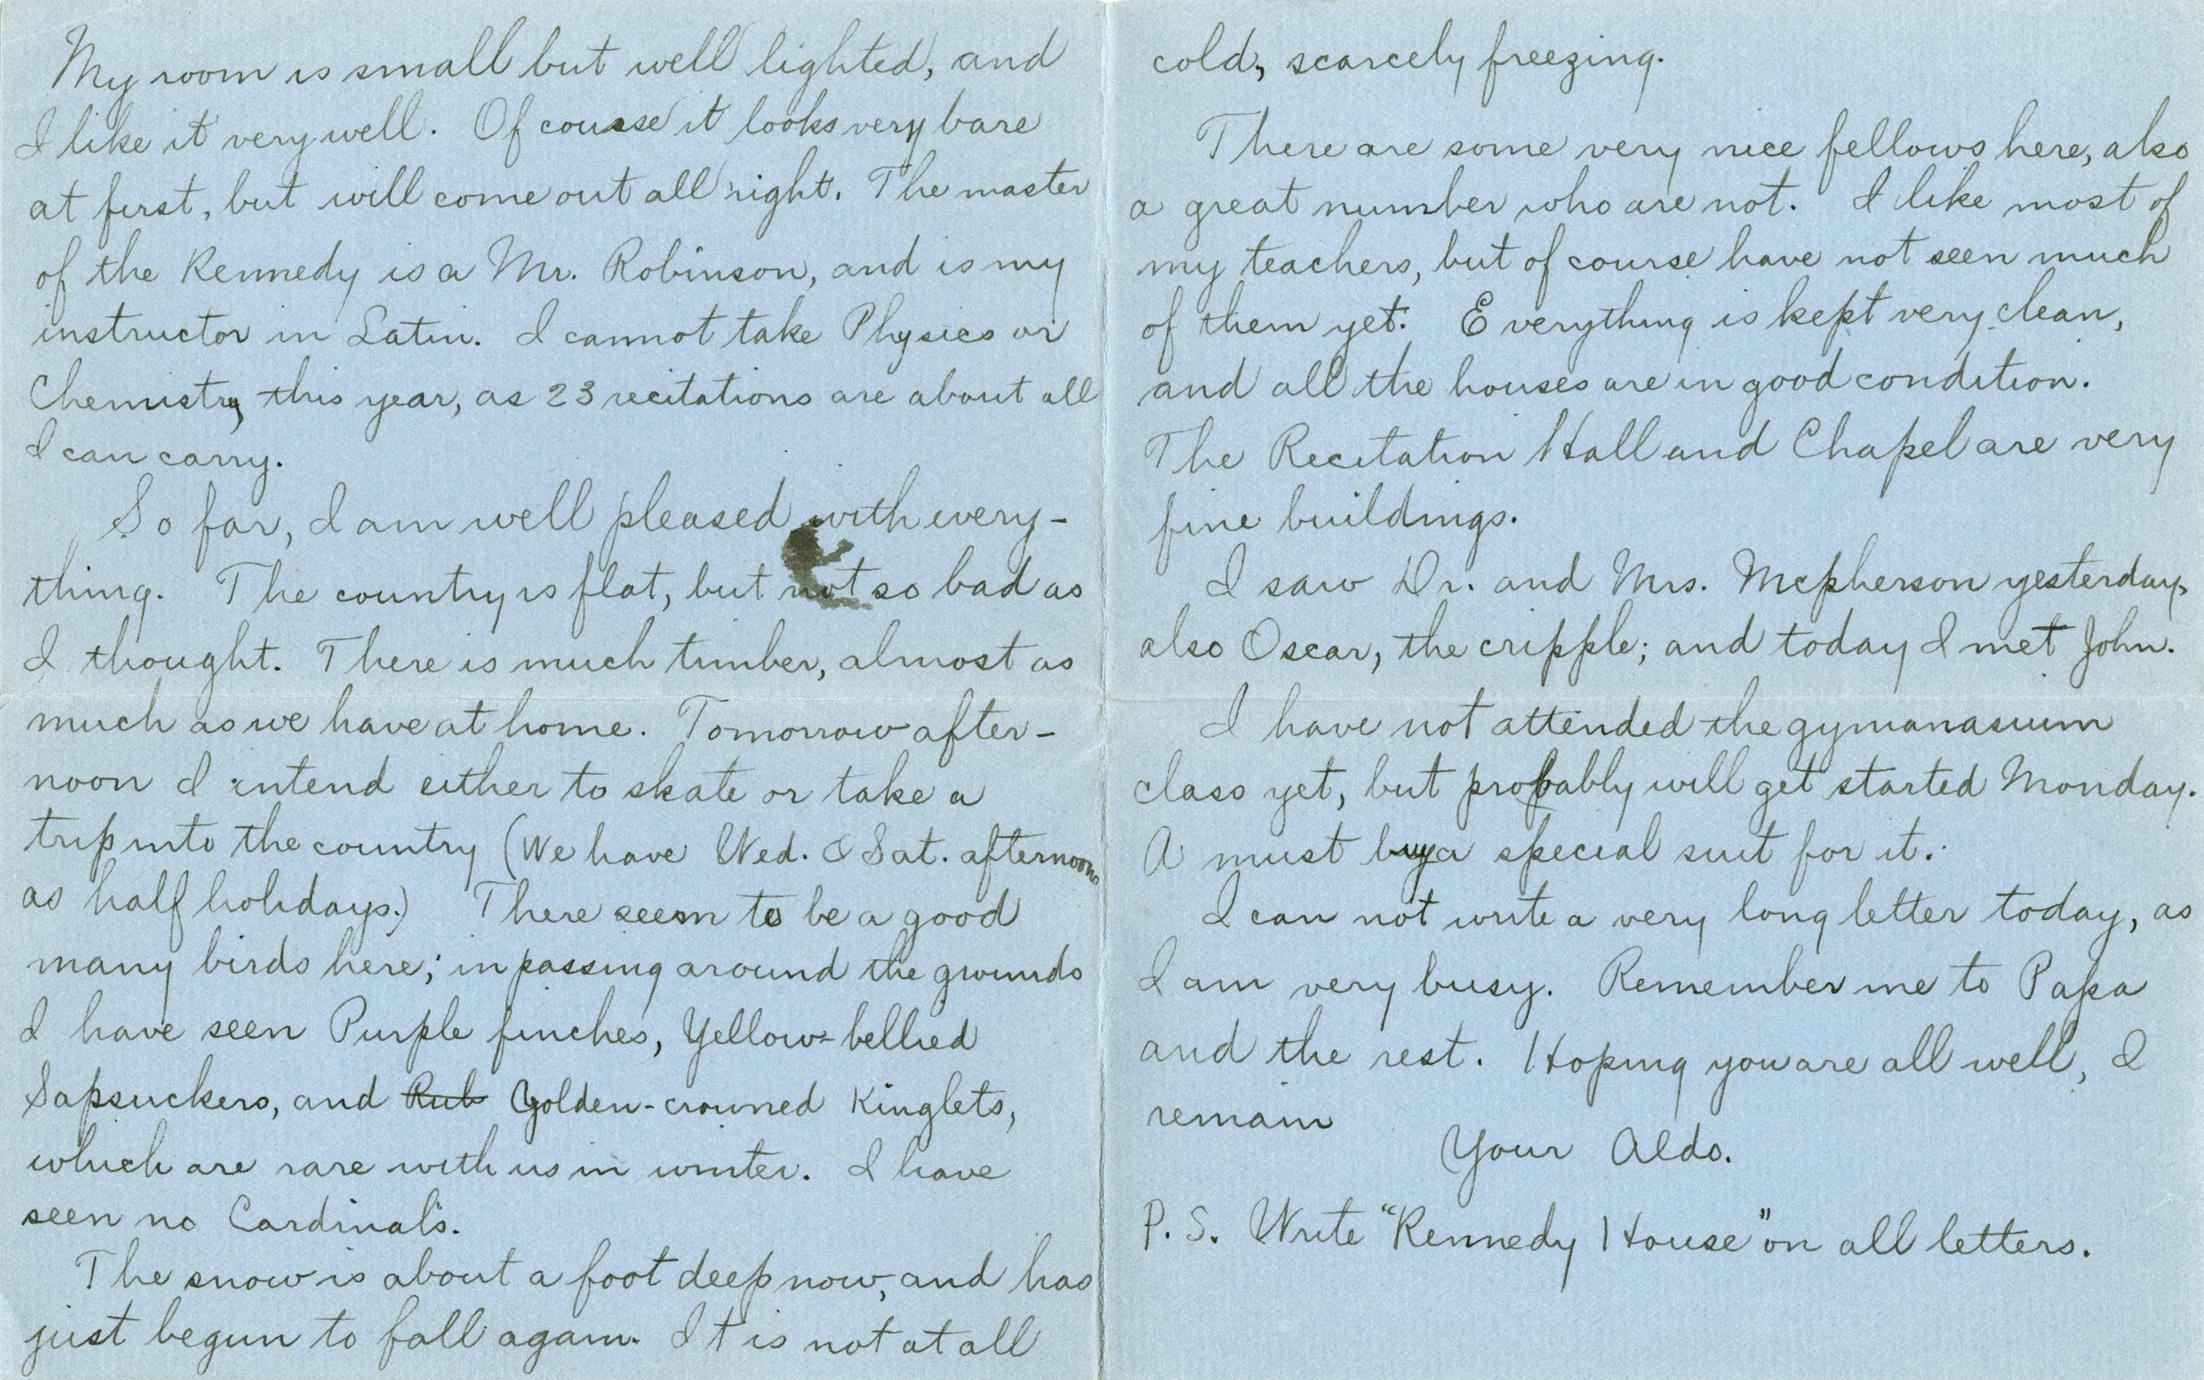 My room is small but well lighted, and
I like it very well. Of course it looks very bare
at first, but will come out all right. The master
of the Kennedy is a Mr. Robinson, and is my
instructor in Latin. I cannot take Physics or
Chemistry this year, as 23 recitations are about all
I can carry.
So far, I am well pleased with every-
thing. The country is flat, but not so bad as
I thought. There is much timber, almost as
much as we have at home. Tomorrow after-
noon I intend either to skate or take a
trip into the country (We have Wed. & Sat. afternoons
as half holidays.) There seem to be a good
many birds here; in passing around the grounds
I have seen Purple finches, Yellow-bellied
Sapsuckers, and Rub Golden-crowned Kinglets,
which are rare with us in winter. I have
seen no Cardinals.
The snow is about a foot deep now, and has
just begun to fall again. It is not at all
cold, scarcely freezing.
There are some very nice fellows here, also
a great number who are not. I like most of
my teachers, but of course have not seen much
of them yet. Everything is kept very clean,
and all the houses are in good condition.
The Recitation Hall and Chapel are very
fine buildings.
I saw Dr. and Mrs. Mcpherson yesterday,
also Oscar, the cripple; and today I met John.
I have not attended the gymanasium
class yet, but probably will get started Monday.
A must buy a special suit for it.
I can not write a very long letter today, as
I am very busy. Remember me to Papa
and the rest. Hoping you are all well, I
remain
Your Aldo.
P.S. Write "Kennedy House" on all letters.